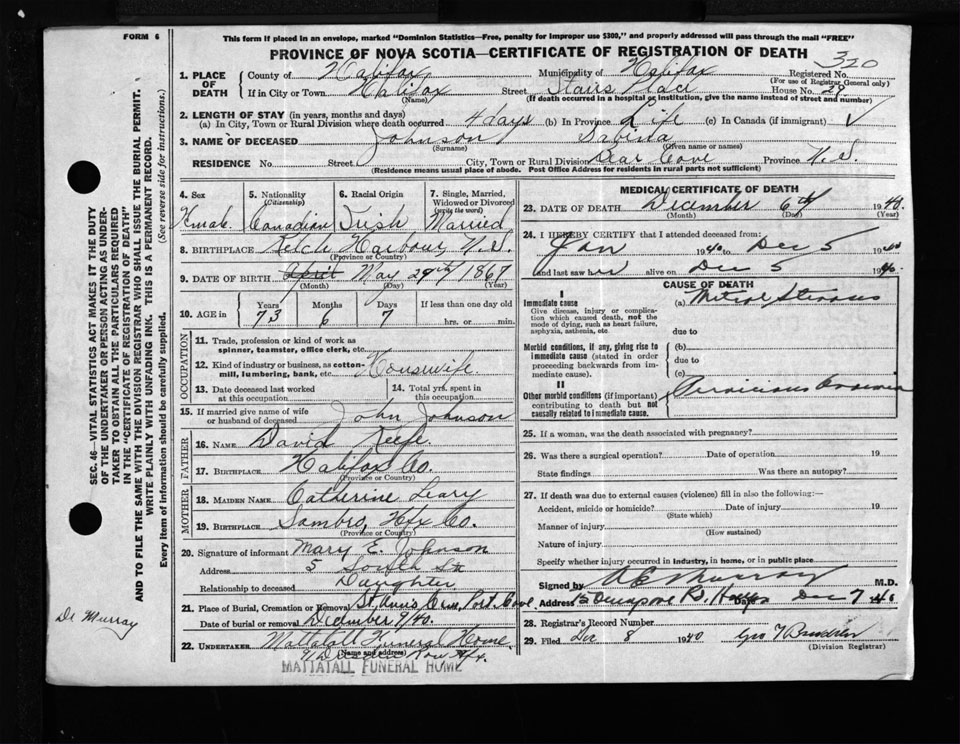 FORM 6
This form if placed in an envelope, marked "Dominion Statistics—Free, penalty for improper use $300," and properly addressed will pass through the mail "FREE"
PROVINCE OF NOVA SCOTIA—CERTIFICATE OF REGISTRATION OF DEATH
320
1. PLACE OF DEATH
County of Halifax Municipality of Halifax Registered No.
(For use of Registrar General only)
If in City or Town Halifax Street Stairs Place House No. 29
(Name) (If death occurred in a hospital or institution, give the name instead of street and number)
2. LENGTH OF STAY (in years, months and days)
(a) In City, Town or Rural Division where death occurred 4 days (b) In Province Life (c) In Canada (if immigrant)
3. NAME OF DECEASED Johnson Sabina
(Surname) (Given name or names)
RESIDENCE No. Street City, Town or Rural Division Bear Cove Province N.S.
(Residence means usual place of abode. Post Office Address for residents in rural parts not sufficient)
4. Sex
5. Nationality (Citizenship)
6. Racial Origin
7. Single, Married, Widowed or Divorced (write the word)
Female Canadian Irish Married
8. BIRTHPLACE Ketch Harbour, N.S.
(Province or Country)
9. DATE OF BIRTH April May 29th 1867
(Month) (Day) (Year)
10. AGE in Years Months Days If less than one day old
73 6 7 hrs. or min.
OCCUPATION
11. Trade, profession or kind of work as spinner, teamster, office clerk, etc.
12. Kind of industry or business, as cotton-mill, lumbering, bank, etc. Housewife.
13. Date deceased last worked at this occupation
14. Total yrs. spent in this occupation
15. If married give name of wife or husband of deceased John Johnson
FATHER
16. NAME David Keefe.
17. BIRTHPLACE Halifax Co.
(Province or Country)
MOTHER
18. MAIDEN NAME Catherine Leary
19. BIRTHPLACE Sambro, Hfx Co.
(Province or Country)
20. Signature of informant Mary E. Johnson
Address 5 South St.
Relationship to deceased Daughter
21. Place of Burial, Cremation or Removal St Ann's Cem. Port.
Date of burial or removal December 7/40.
22. UNDERTAKER Mattatall Funeral Home
(Name and address) Row Hfx.
MATTATALL FUNERAL HOME
MEDICAL CERTIFICATE OF DEATH
23. DATE OF DEATH December 6th 1940.
(Month) (Day) (Year)
24. I HEREBY CERTIFY that I attended deceased from:
Jan 1940 to Dec 5 1940
and last saw her alive on Dec 5 1940.
CAUSE OF DEATH
I
Immediate cause (a) Mitral Stenosis
Give disease, injury or complication which caused death, not the mode of dying, such as heart failure, asphyxia, asthenia, etc.
due to
Morbid conditions, if any, giving rise to immediate cause (stated in order proceeding backwards from immediate cause).
(b)
due to
(c)
II
Other morbid conditions (if important) contributing to death but not causally related to immediate cause.
Pernicious Anaemia
25. If a woman, was the death associated with pregnancy?
26. Was there a surgical operation? Date of operation 19
State findings Was there an autopsy?
27. If death was due to external causes (violence) fill in also the following:—
Accident, suicide or homicide? Date of injury 19
(State which)
Manner of injury
(How sustained)
Nature of injury
Specify whether injury occurred in industry, in home, or in public place
Signed by Murray M.D.
Address Hfx Date Dec 7 40
28. Registrar's Record Number
29. Filed Dec 8 1940 Geo
(Division Registrar)
SEC. 46—VITAL STATISTICS ACT MAKES IT THE DUTY
OF THE UNDERTAKER OR PERSON ACTING AS UNDERTAKER TO OBTAIN ALL THE PARTICULARS REQUIRED
IN THE "CERTIFICATE OF REGISTRATION OF DEATH"
AND TO FILE THE SAME WITH THE DIVISION REGISTRAR WHO SHALL ISSUE THE BURIAL PERMIT.
WRITE PLAINLY WITH UNFADING INK. THIS IS A PERMANENT RECORD.
Every item of information should be carefully supplied. (See reverse side for instructions.)
Dr Murray